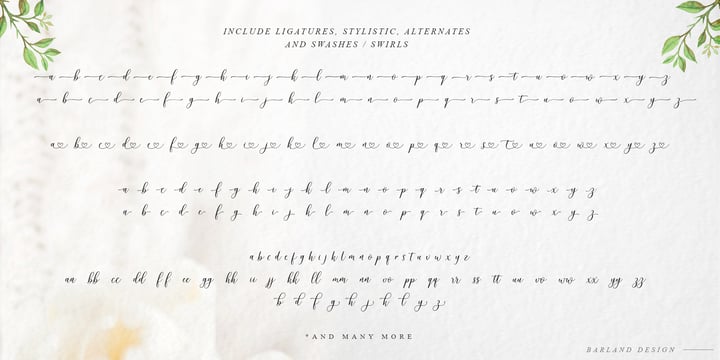 INCLUDE LIGATURES, STYLISTIC, ALTERNATES
AND SWASHES / SWIRLS
a b c d e f g h i j k l m n o p q r s t u v w x y z
a b c d e f g h i j k l m n o p q r s t u v w x y z
a b c d e f g h i j k l m n o p q r s t u v w x y z
a b c d e f g h i j k l m n o p q r s t u v w x y z
a b c d e f g h i j k l m n o p q r s t u v w x y z
a b c d e f g h i j k l m n o p q r s t u v w x y z
aa bb cc dd ff ee gg hh ii jj kk ll mm nn oo pp qq rr ss tt uu vv ww xx yy zz
b d f g h j k l y z
*AND MANY MORE
BARLAND DESIGN